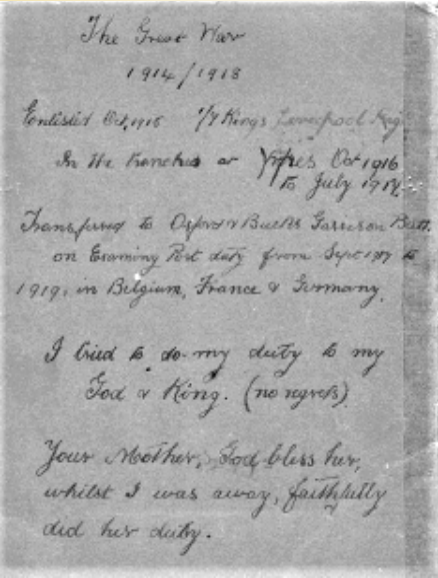 The Great War
1914/1918
Enlisted Oct, 1915 1/7 Kings Liverpool Reg
In the trenches at Ypres Oct 1916
to July 1917.
Transferred to Oxford & Bucks Garrison Batt.
on Examining Port duty from Sept 1917 to
1919, in Belgium, France & Germany.
I tried to do my duty to my
God & King. (no regrets)
Your Mother, God bless her,
whilst I was away, faithfully
did her duty.